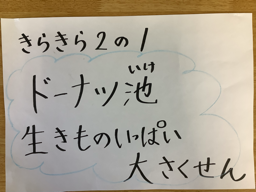 きらきら2の1
いけ
ドーナツ池
生きものいっぱい
大さくせん